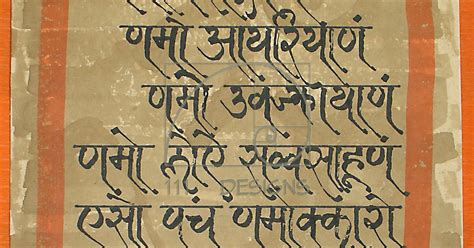 णमो आयरियाणं
णमो उवज्झायाणं
णमो लोए सव्वसाहूणं
DESIGNS
एसो पंच णमोक्कारो